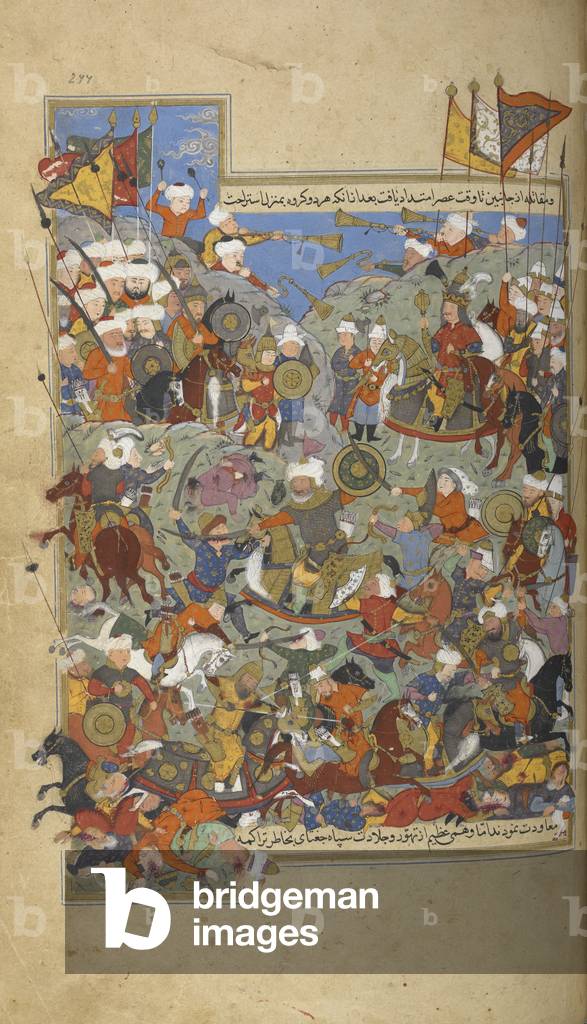 ۲۷۷
ومقاتله از جانبین تا وقت عصر امتداد یافت بعد از انکه هر دو کروه بمنزل استراحت
معاودت نمودند اما وهمی عظیم از تهور و جلادت سپاه جغتای بخاطر تراکمه
b bridgeman
images